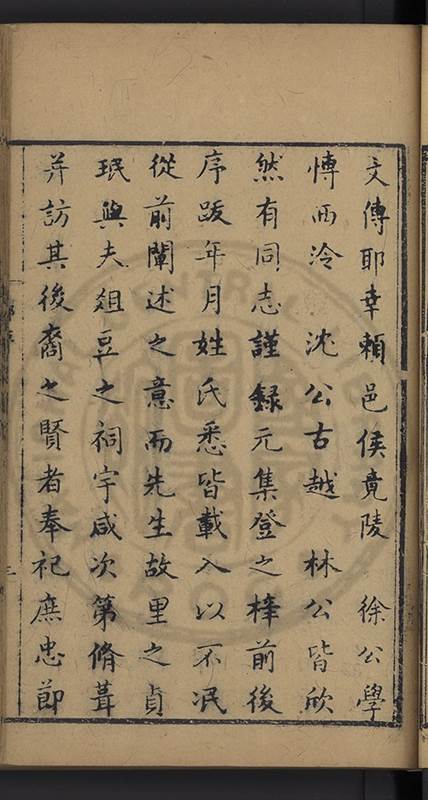 文傳耶幸賴邑侯竟陵　徐公學
愽西泠　沈公古越　林公皆欣
然有同志謹録元集登之梓前後
序跋年月姓氏悉皆載入以不泯
從前闡述之意而先生故里之貞
珉與夫俎豆之祠宇咸次第脩葺
并訪其後裔之賢者奉祀庶忠節